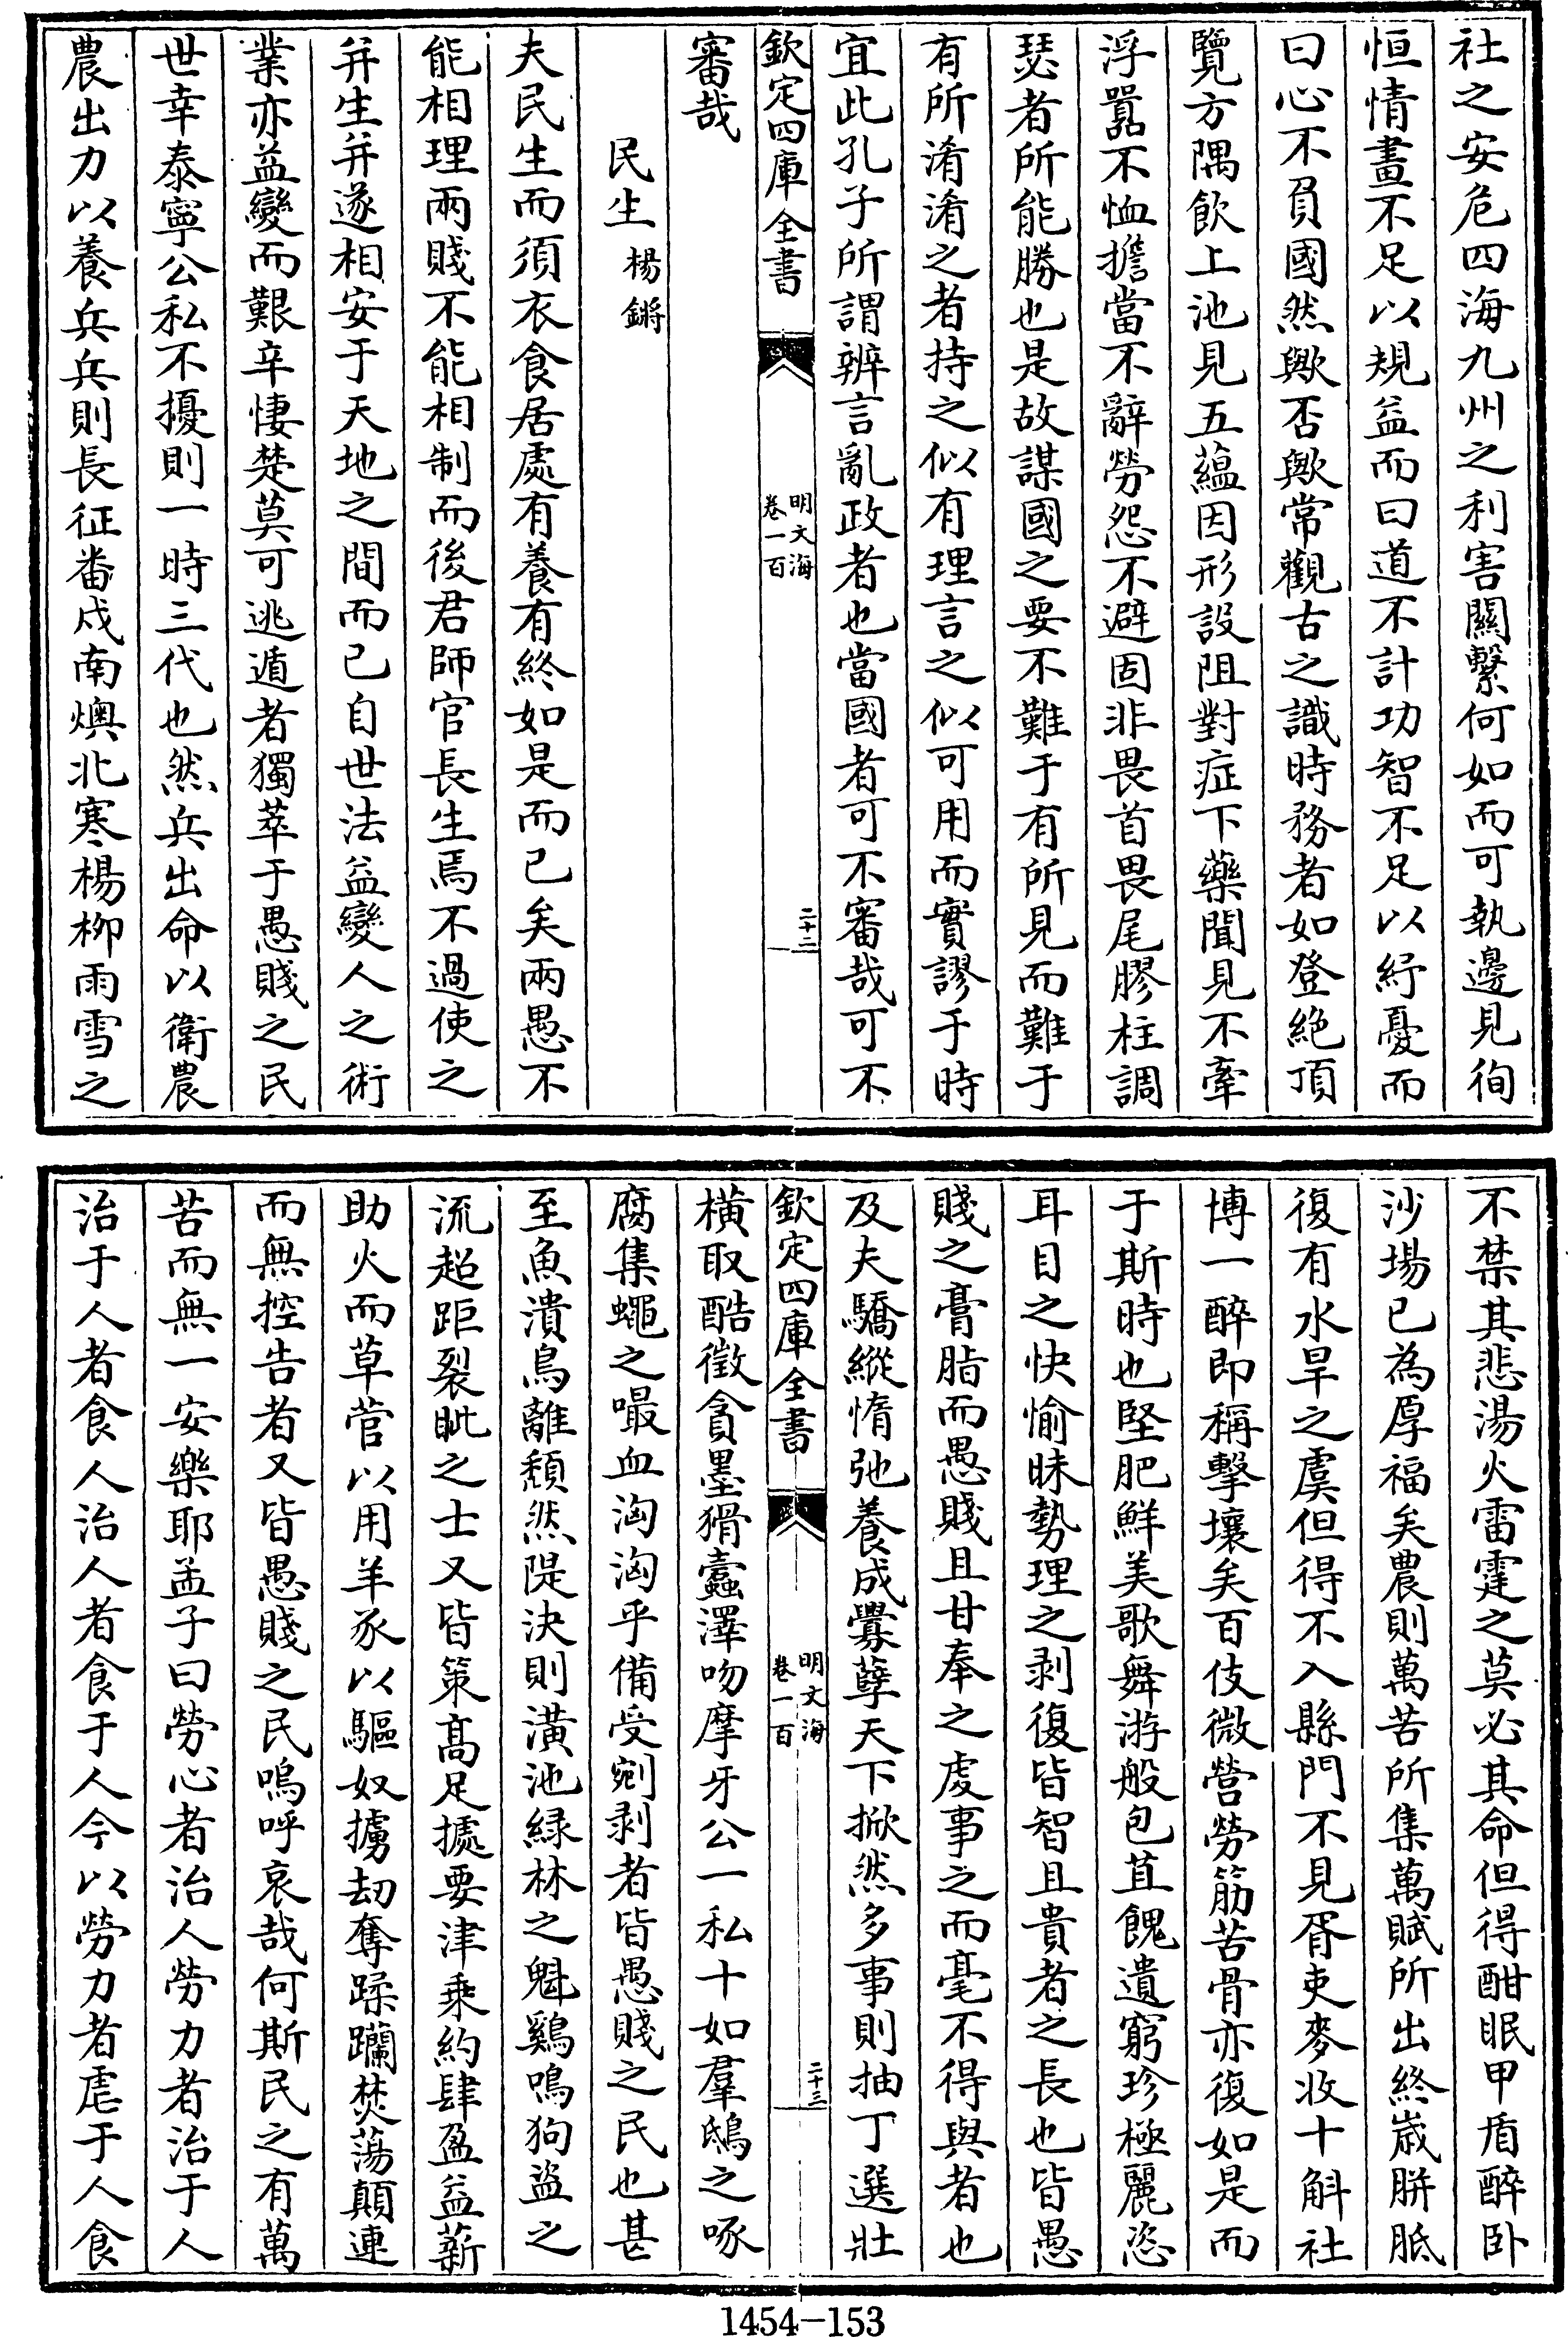 社之安危四海九州之利害關繫何如而可執邊見徇
恒情畫不足以規益而曰道不計功智不足以紓憂而
曰心不負國然歟否歟常觀古之識時務者如登絶頂
覽方隅飲上池見五蘊因形設阻對症下藥聞見不牽
浮囂不恤擔當不辭勞怨不避固非畏首畏尾膠柱調
瑟者所能勝也是故謀國之要不難于有所見而難于
有所淆淆之者持之似有理言之似可用而實謬于時
宜此孔子所謂辨言亂政者也當國者可不審哉可不
欽定四庫全書
明文海
卷一百
二十二
審哉
民生 楊鏘
夫民生而須衣食居處有養有終如是而已矣兩愚不
能相理兩賤不能相制而後君師官長生焉不過使之
并生并遂相安于天地之間而已自世法益變人之術
業亦益變而艱辛悽楚莫可逃遁者獨萃于愚賤之民
世幸泰寧公私不擾則一時三代也然兵出命以衛農
農出力以養兵兵則長征番戍南燠北寒楊柳雨雪之
不禁其悲湯火雷霆之莫必其命但得酣眠甲盾醉卧
沙場已為厚福矣農則萬苦所集萬賦所出終嵗胼胝
復有水旱之虞但得不入縣門不見胥吏麥收十斛社
博一醉即稱擊壤矣百伎微營勞筋苦骨亦復如是而
于斯時也堅肥鮮美歌舞游般包苴餽遺窮珍極麗恣
耳目之快愉昧勢理之剥復皆智且貴者之長也皆愚
賤之膏脂而愚賤且甘奉之虔事之而毫不得與者也
及夫驕縱惰弛養成釁孽天下掀然多事則抽丁選壯
欽定四庫全書
明文海
卷一百
二十三
橫取酷徵貪墨猾蠹澤吻摩牙公一私十如羣鴟之啄
腐集蠅之嘬血洶洶乎備受剜剥者皆愚賤之民也甚
至魚潰鳥離頽然隄決則潢池緑林之魁鷄鳴狗盜之
流超距裂眦之士又皆策高足據要津乘約肆盈益薪
助火而草菅以用羊豕以驅奴擄刼奪蹂躪焚蕩顛連
而無控告者又皆愚賤之民嗚呼哀哉何斯民之有萬
苦而無一安樂耶孟子曰勞心者治人勞力者治于人
治于人者食人治人者食于人今以勞力者虐于人食
1454-153